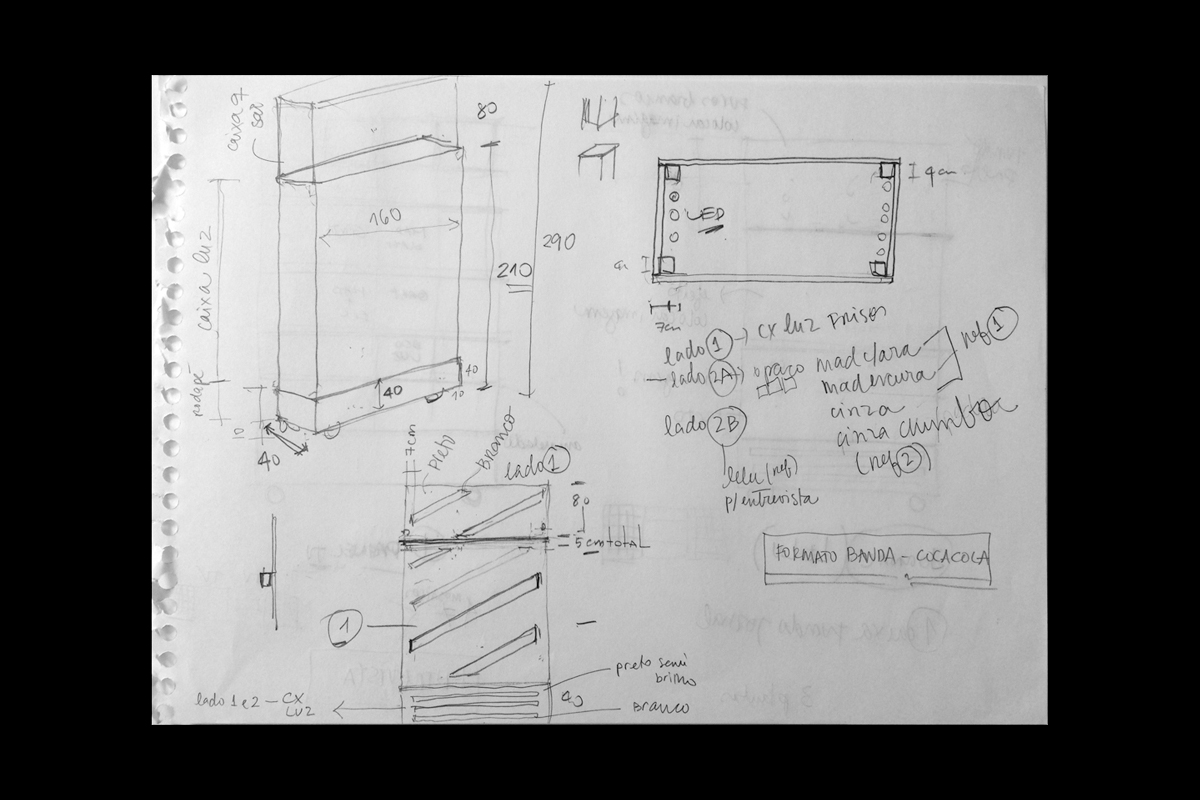 caixa q
sai
80
160
290
210
caixa luz
rodapé
40
40
10
10
40
LED
4cm
7cm
lado 1 → cx luz Frisos
lado 2A → opaco mad clara
mad escura
ref 1
cinza
cinza chumbo
(ref 2)
lado 2B
p/entrevista
FORMATO BANDA - COCACOLA
7cm
Preto
Branco
lado 1
80
5 cm total
1
preto semi
brilho
40
Branco
lado 1 e 2 - CX
LUZ